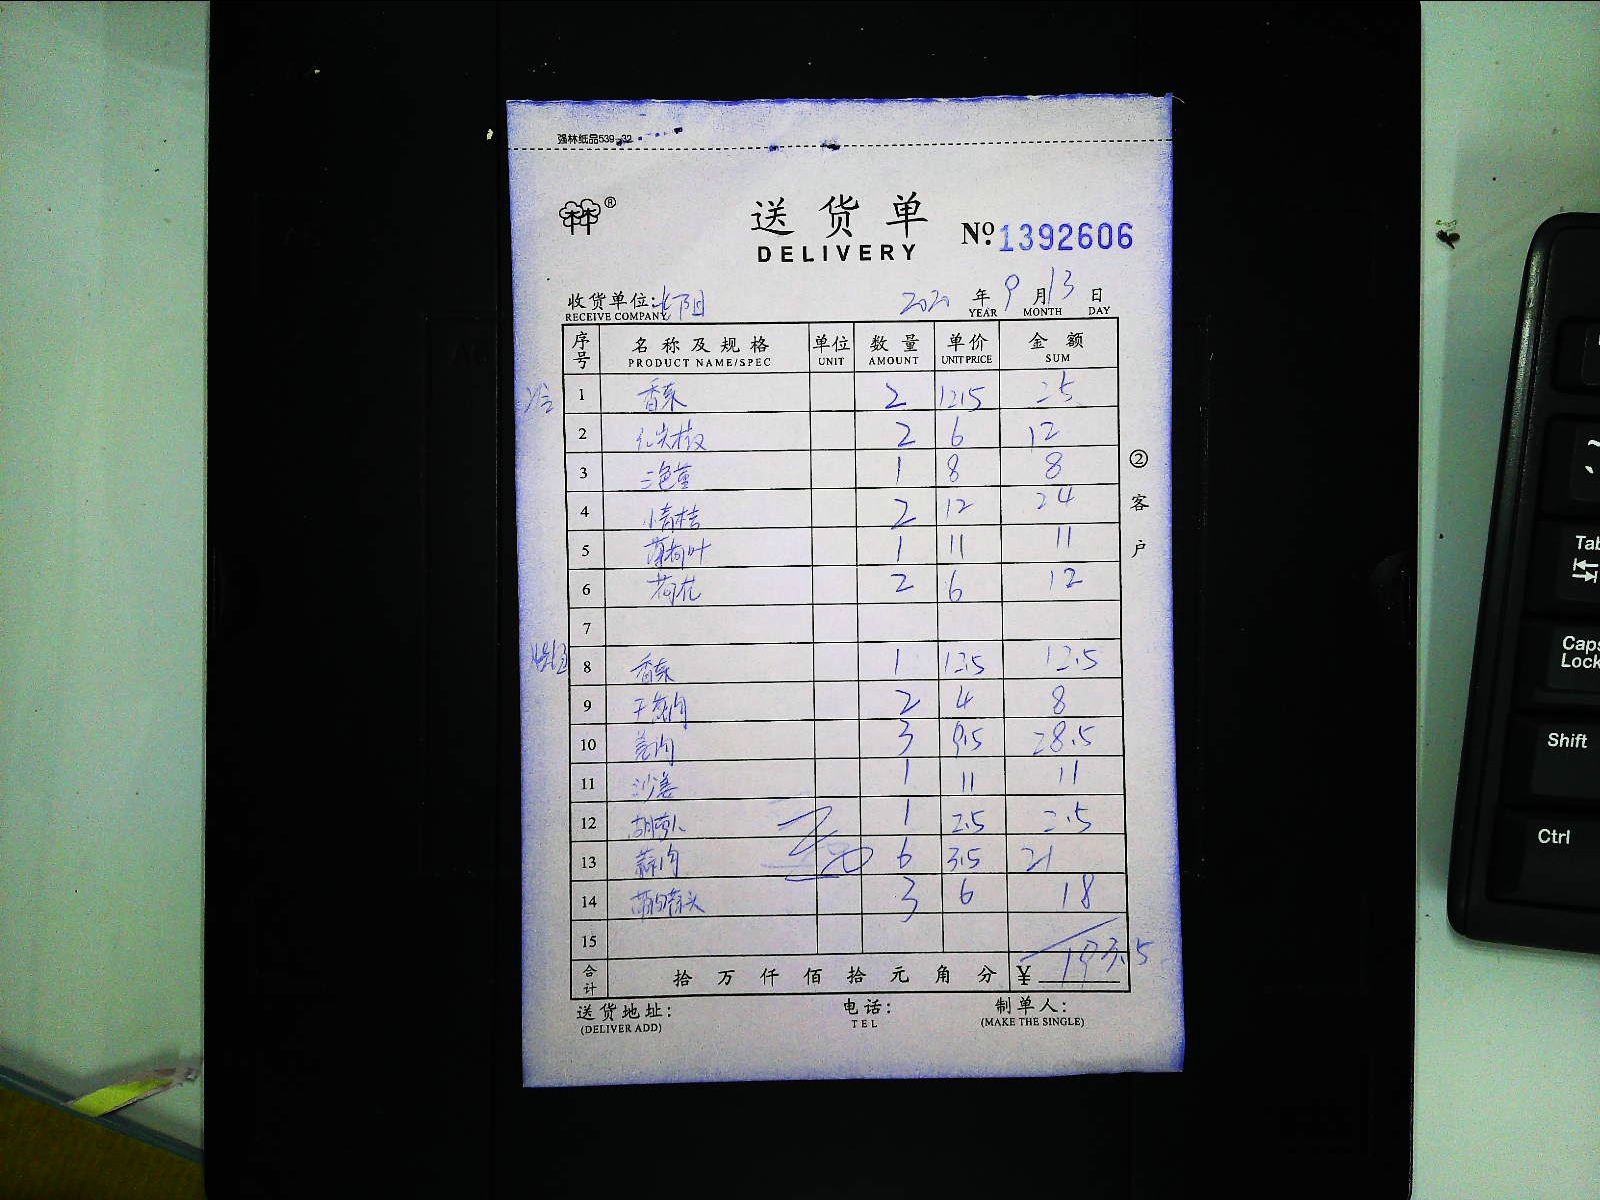 强林纸品539-32
送货单
DELIVERY
Nº.1392606
收货单位:
RECEIVE COMPANY
2020 年 9 月 13 日
YEAR MONTH DAY
序号 名称及规格 单位 数量 单价 金额
PRODUCT NAME/SPEC UNIT AMOUNT UNIT PRICE SUM
1 香菜 2 12.5 25
2 2 6 12
3 三色堇 1 8 8
4 小青桔 2 12 24
5 薄荷叶 1 11 11
6 荷花 2 6 12
7
8 香菜 1 12.5 12.5
9 干葱肉 2 4 8
10 姜肉 3 9.5 28.5
11 沙姜 1 11 11
12 胡萝卜 1 2.5 2.5
13 蒜肉 6 3.5 21
14 3 6 18
15
合计 拾 万 仟 佰 拾 元 角 分 ¥ 193.5
②客户
送货地址: 电话: 制单人:
(DELIVER ADD) TEL (MAKE THE SINGLE)
Tab
Caps
Lock
Shift
Ctrl